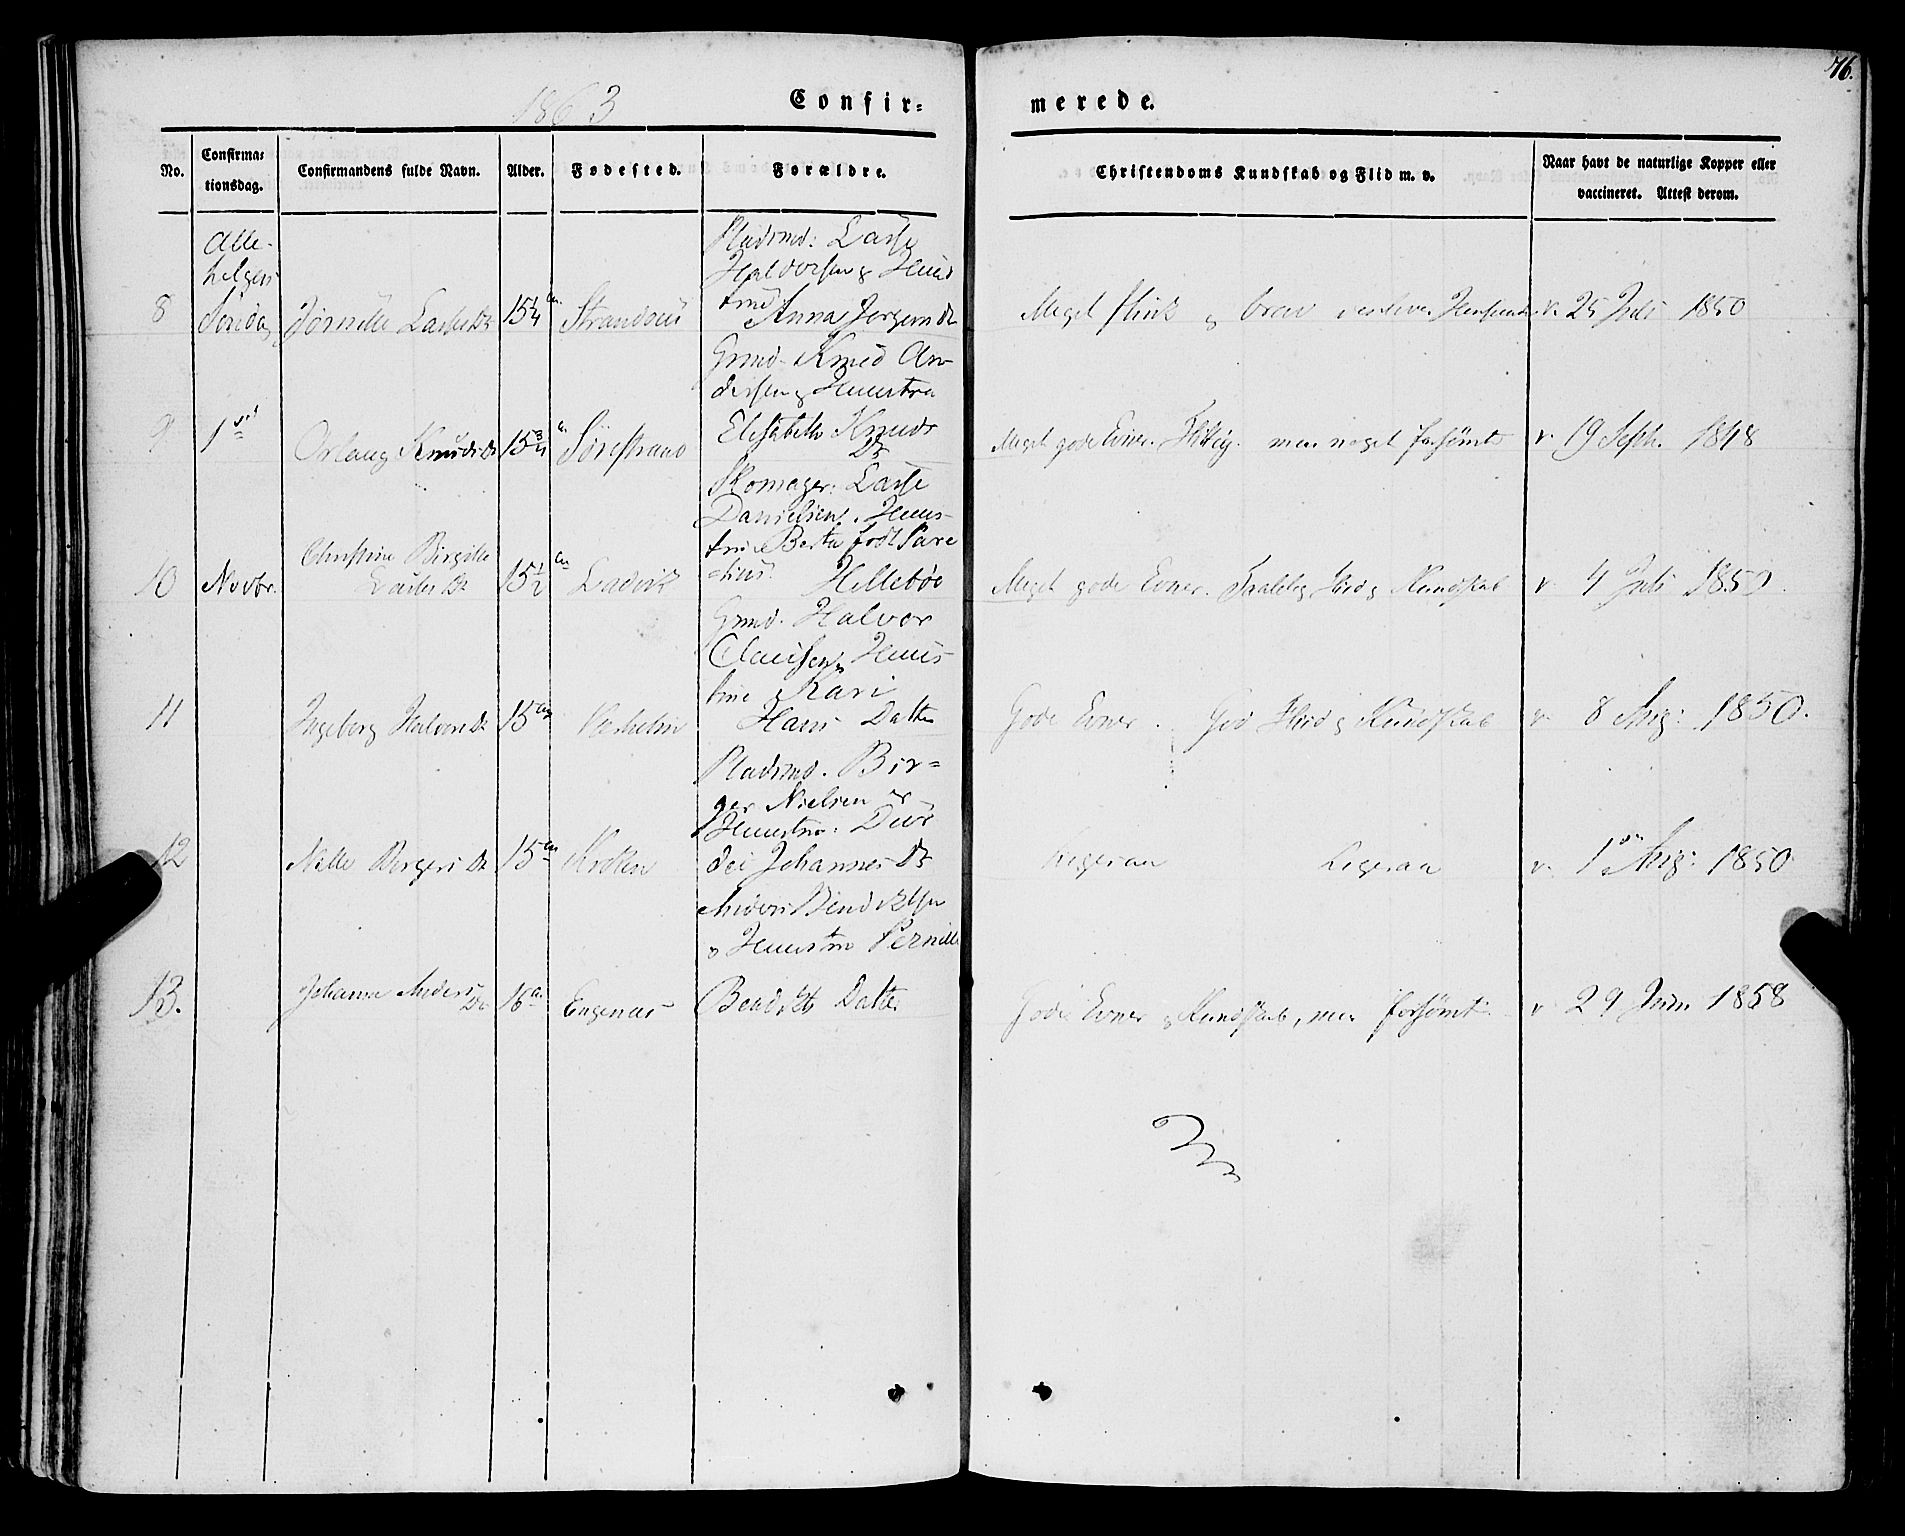 76.
1863
Confir=
merede.
No.
Confirma=
tionsdag.
Confirmandens fulde Navn.
Alder.
Fødested.
Forældre.
Christendoms Kundskab og Flid m. v.
Naar havt de naturlige Kopper eller
vaccineret. Attest derom.
Alle-
helgens
Søndag
8
Lasse Dr
15 1/4
Pladsmd: Lasse
Halvorsen & Hus
true Anna Jørgens Dr
Meget flink og brav
v. 25 Juli 1850
9
1ste
Knuds Dr
15 3/4
Sørestrand
Grmd. Knud An-
dersen & Huustru
Elisabeth Knuds
Dr
Meget gode Evner. Flittig. men noget forsømt
v. 19 Septb. 1848
10
Novbr.
Christine Birgitte
Lasses Dr
15 1/2
Ladvik
Skomager: Lasse
Danielsen. Huus-
true Berta født Pare
lius. Hellebøe
Meget gode Evner. Flid og Kundskab
v. 4 Juli 1850.
11
Ingeborg Halvors Dr
15
Grmd. Halvor
Clausen & Huus-
true Kari
Hans Datter
Gode Evner. God Flid og Kundskab
v. 8 Aug: 1850.
12
Bergers Dr
15
Pladsmd. Bir=
ger Nielsen &
Huustru: Dor
dei Johannes Dr
Ligesaa
Ligesaa
v. 1 Aug: 1850
13.
Johanne Anders
Dr
16
Engenæs
Anders Bendiktsen
& Huustru Pernille
Bendikts Datter
Gode Evner & Kundskab, men forsømt
v. 29 Juni 1858